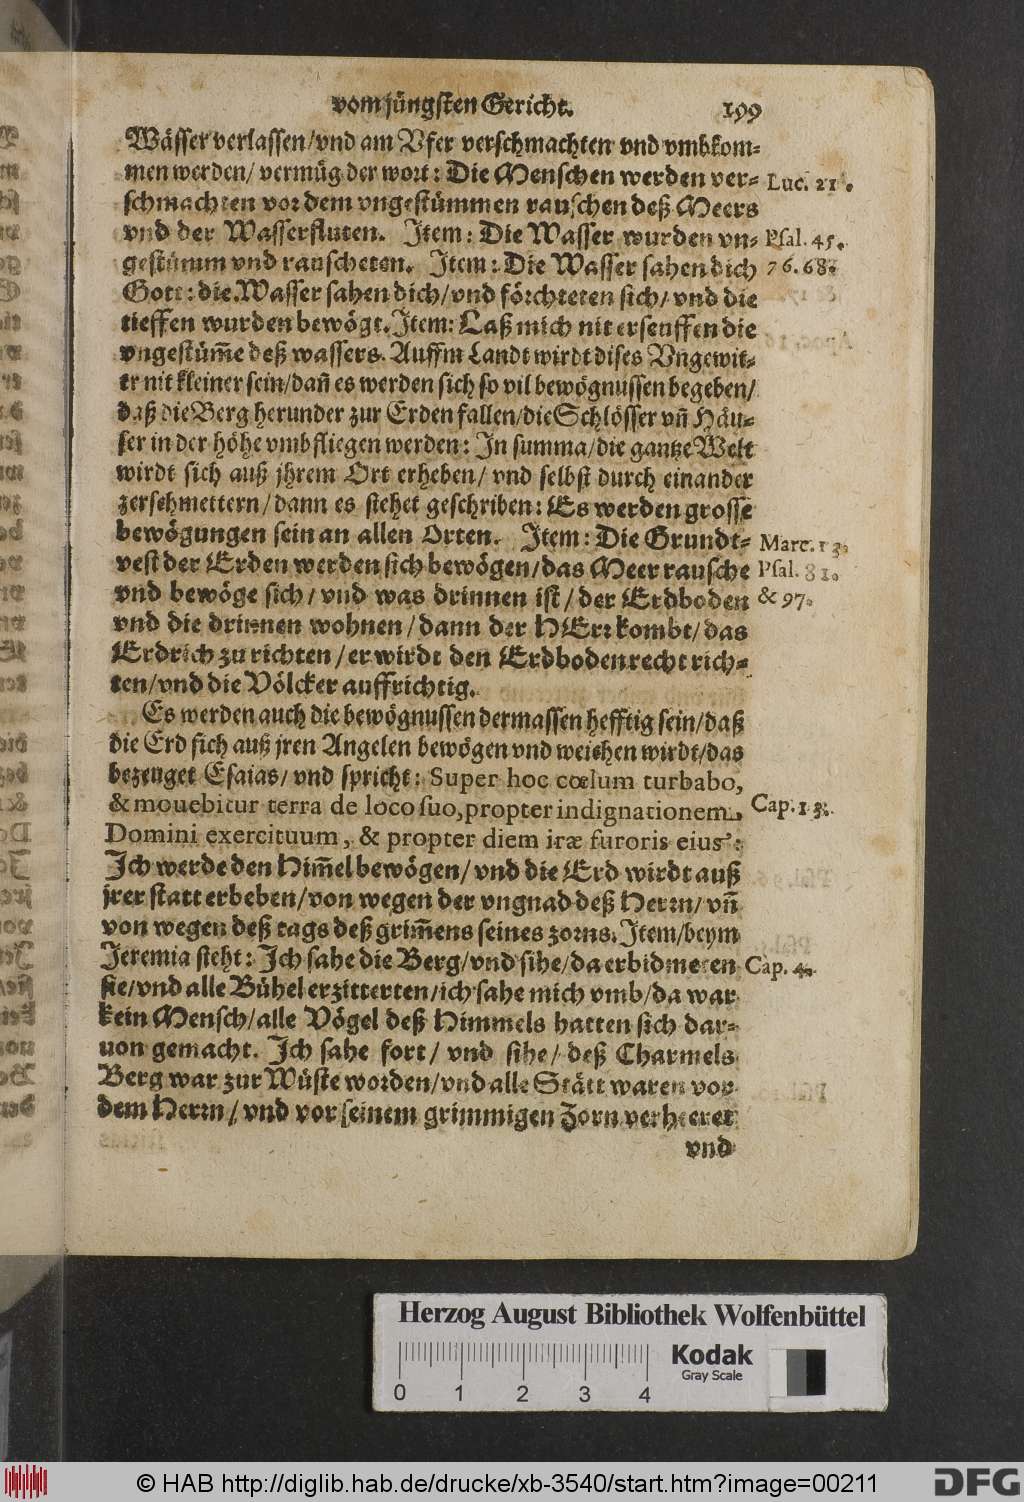 vom jüngsten Gericht. 199
Wässer verlassen/vnd am Vfer verschmachten vnd vmbkom-
men werden/ vermüg der wort: Die Menschen werden ver- Luc. 21.
schmachten vor dem vngestümmen rauschen deß Meers
vnd der Wasserfluten. Item: Die Wasser wurden vn- Psal. 45.
gestümm vnd rauscheten. Item: Die Wasser sahen dich 76. 68.
Gott: die Wasser sahen dich/vnd förchteten sich/ vnd die
tieffen wurden bewögt. Item: Laß mich nit erseuffen die
vngestüm̃e deß wassers. Auffm Landt wirdt dises Vngewit-
ter nit kleiner sein/dañ es werden sich so vil bewögnussen begeben/
daß die Berg herunder zur Erden fallen/die Schlösser vñ Häu-
ser in der höhe vmbfliegen werden: In summa/die gantze Welt
wirdt sich auß jhrem Ort erheben/ vnd selbst durch einander
zerschmettern/dann es stehet geschriben: Es werden grosse
bewögungen sein an allen Orten. Item: Die Grundt- Marc. 13.
vest der Erden werden sich bewögen/das Meer rausche Psal. 81.
vnd bewöge sich/ vnd was drinnen ist/ der Erdboden & 97.
vnd die drinnen wohnen/dann der HErr kombt/das
Erdrich zu richten/er wirdt den Erdboden recht rich-
ten/vnd die Völcker auffrichtig.
Es werden auch die bewögnussen dermassen hefftig sein/daß
die Erd sich auß jren Angelen bewögen vnd weichen wirdt/das
bezeuget Esaias/ vnd spricht: Super hoc cœlum turbabo,
& mouebitur terra de loco suo, propter indignationem Cap. 13.
Domini exercituum, & propter diem iræ furoris eius:
Ich werde den Him̃el bewögen/ vnd die Erd wirdt auß
jrer statt erbeben/von wegen der vngnad deß Herrn/ vñ
von wegen deß tags deß grim̃ens seines zorns. Item/beym
Jeremia steht: Ich sahe die Berg/vnd sihe/da erbidmeten Cap. 4.
sie/vnd alle Bühel erzitterten/ich sahe mich vmb/da war
kein Mensch/alle Vögel deß Himmels hatten sich dar-
uon gemacht. Ich sahe fort/ vnd sihe/ deß Charmels
Berg war zur Wüste worden/vnd alle Stätt waren vor
dem Herrn/ vnd vor seinem grimmigen Zorn verheeret
vnd
Herzog August Bibliothek Wolfenbüttel
Kodak
Gray Scale
0 1 2 3 4
© HAB http://diglib.hab.de/drucke/xb-3540/start.htm?image=00211
DFG